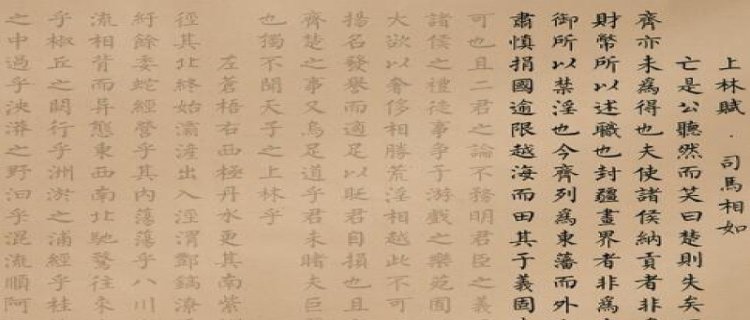 上林賦·司馬相如
亡是公聽然而笑曰楚則失矣
齊亦未爲得也夫使諸侯納貢者非
財幣所以述職也封疆畫界者非爲
御所以禁淫也今齊列爲東藩而外
肅慎捐國逾限越海而田其于義固
可也且二君之論不務明君臣之義
諸侯之禮徒事爭于游戲之樂苑囿
大欲以奢侈相勝荒淫相越此不可
揚名發譽而適足以貶君自損也且
齊楚之事又烏足道乎君未睹夫巨
也獨不聞天子之上林乎
左蒼梧右西極丹水更其南紫
徑其北終始灞滻出入涇渭酆鎬潦
紆餘委蛇經營乎其內蕩蕩乎八川
流相背而異態東西南北馳騖往來
乎椒丘之闕行乎洲淤之浦經乎桂
之中過乎泱漭之野汩乎混流順阿